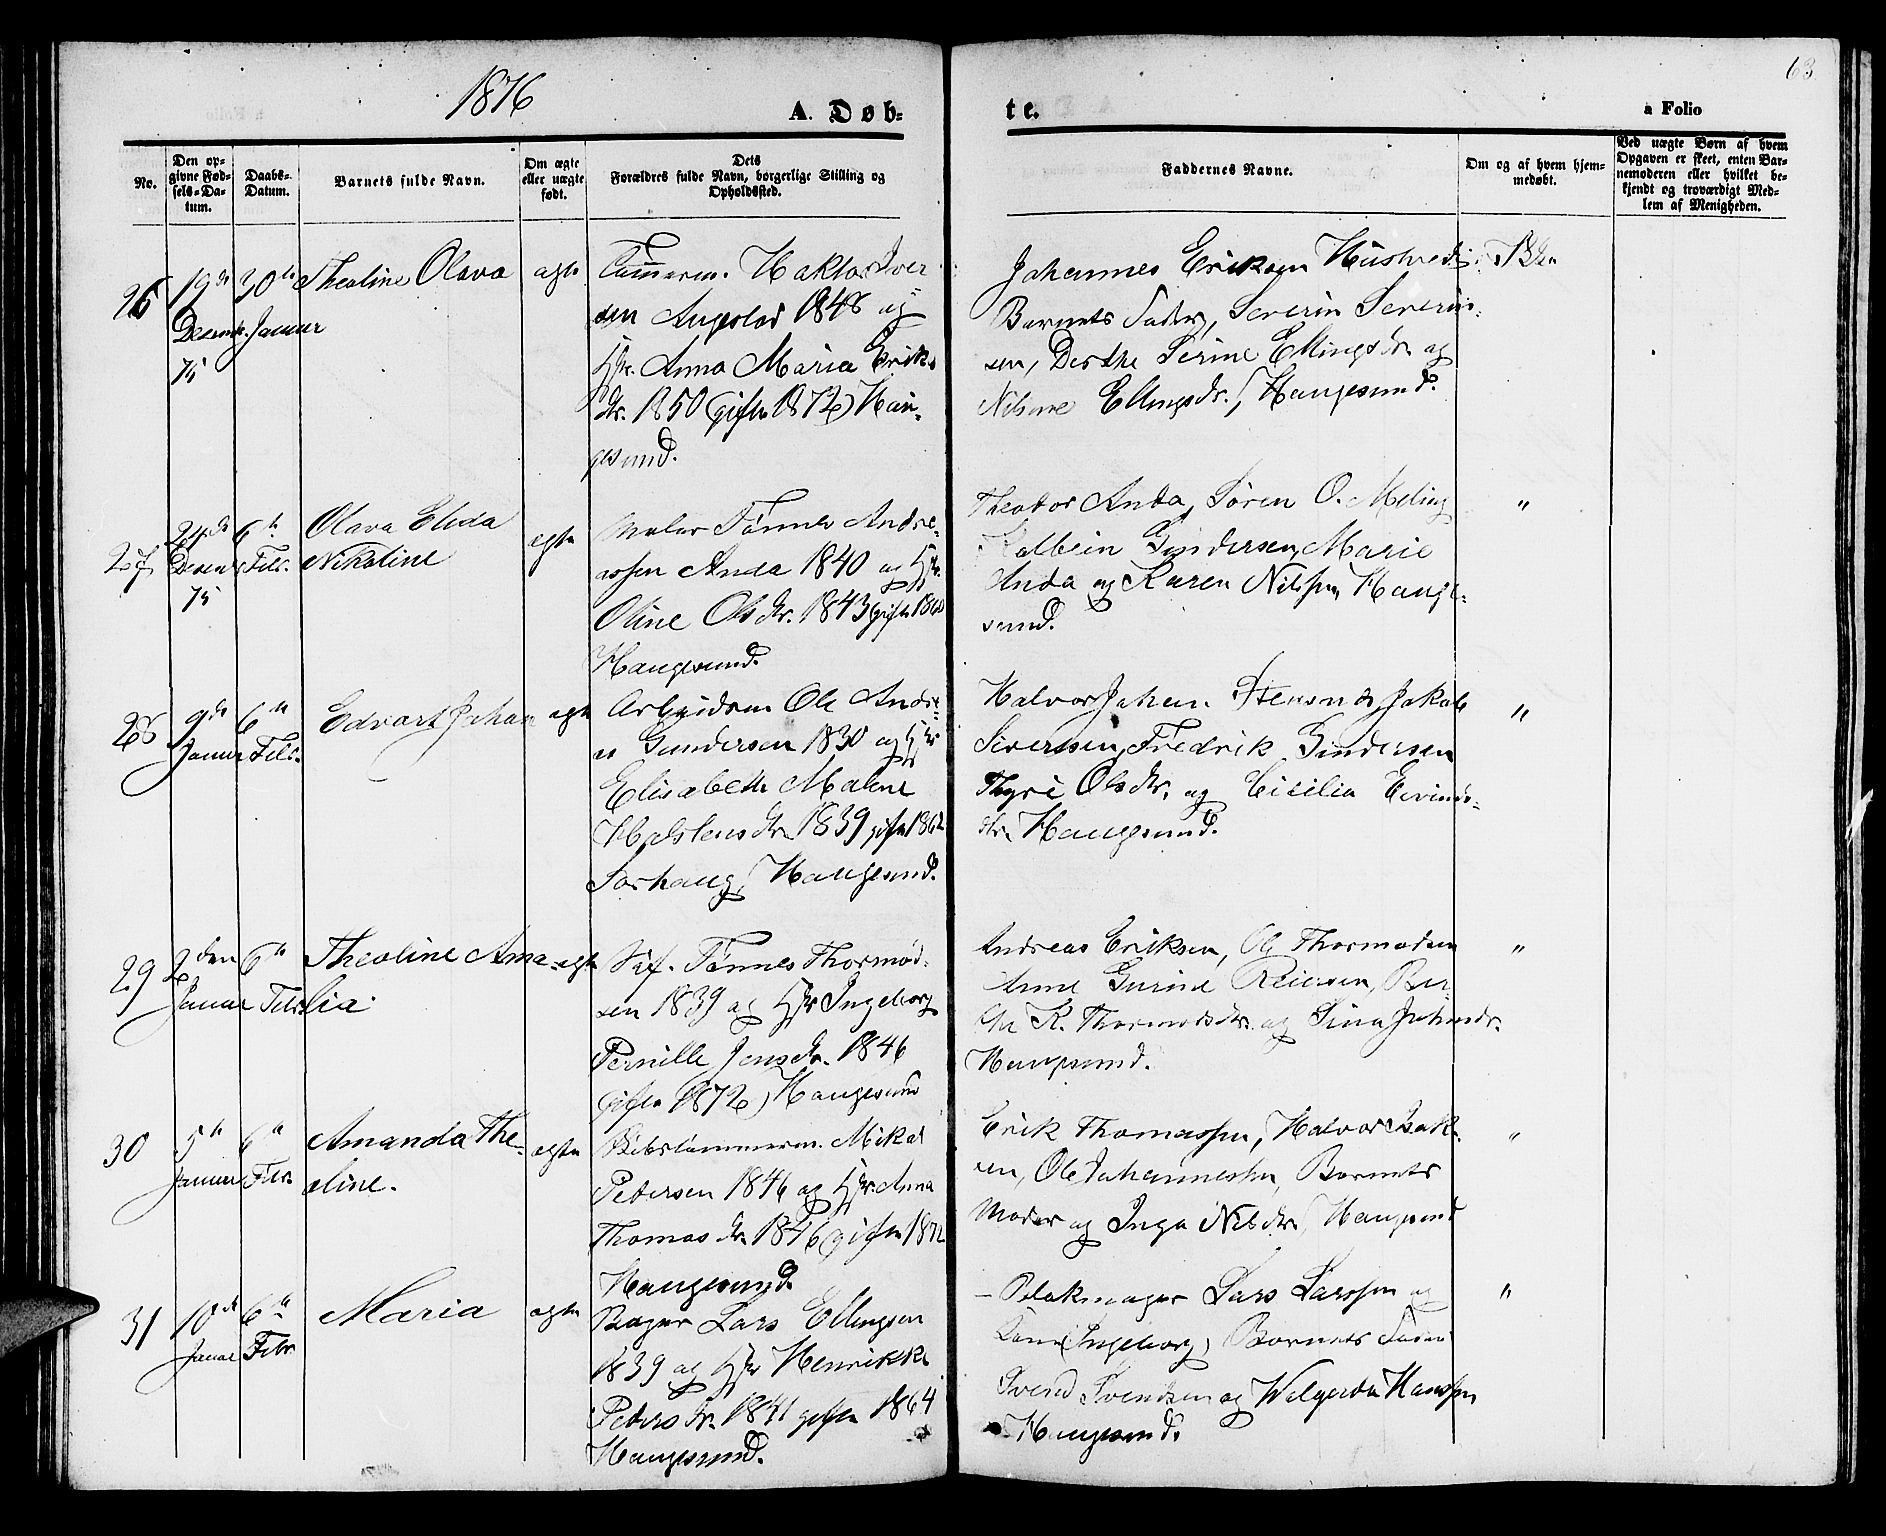 1876
A. Døb=
te.
a Folio
63.
No.
Den op-
givne Fød-
sels-Da-
tum.
Daabs-
Datum.
Barnets fulde Navn.
Om ægte
eller uægte
født.
Dets
Forældres fulde Navn, borgerlige Stilling og
Opholdssted.
Faddernes Navne.
Om og af hvem hjem-
medøbt.
Ved uægte Børn af hvem
Opgaven er skeet, enten Bar-
nemoderen eller hvilket be-
kjendt og troværdigt Med-
lem af Menigheden.
26
19de
Desembr.
75
30te
Januar
Theoline Olava
ægte
Tømmerm. Haktor Iver
sen 1848 og
Hstr. Anna Maria Eriks
dtr. 1850 (gifte 1872) Hau-
gesund.
Johannes Eriksen
Barnets Fader, Severin Severin-
sen, Dorthe Serine Ellingsdtr. og
Nilsine Ellingsdtr., Haugesund.
27
24de
Desem
75
6te
Febr.
Olava Elida
Nikoline
egte
Maler Tønnes Andre-
assen Anda 1840 og Hstr.
Oline Olsdtr. 1843 gifte 1860
Haugesund.
Theodor Anda, Søren O. Meling
Kolbein Gundersen, Marie
Anda og Karen Nilssen, Hauge-
sund.
"
28
9de
Januar
6te
Febr.
Edvart Johan
ægte
Arbeidsm Ole Andre-
as Gundersen 1830 og Hstr
Elisabeth Malene
Halstensdtr. 1839 gifte 1862
Sørhaug, Haugesund.
Halvor Johan. Stensnes, Jakob
Siversen, Fredrik Gundersen
Thyri Olsdtr. og Cicilia Eivinds-
dtr. Haugesund.
"
29
2den
Januar
6te
Febr
Theoline Ama-
lia.
egte
Tønnes Thormod-
sen 1839 og Hstr Ingeborg
Pernille Jensdtr. 1846
gifte 1872, Haugesund
Andreas Eriksen, Ole Thormodsen
Anne Gurine Reiersen, Ber-
the K. Thormodsdtr. og Sina Johnsdtr.
Haugesund.
"
30
5te
Januar
6te
Febr.
Amanda The-
oline.
ægte
Skibstømmerm. Mikal
Petersen 1846 og Hstr. Anna
Thomasdtr. 1846 gifte 1872
Haugesund.
Erik Thomassen, Halvor Isak-
sen, Ole Johannessen, Barnets
Moder og Inga Nilsdtr., Haugesund
"
31
10de
Januar
6te
Febr
Maria
ægte
Bager Lars Ellingsen
1839 og Hstr Henrikke
Petersdtr. 1841 gifte 1864
Haugesund.
Blokmager Lars Larssen og
Kone (Ingeborg), Barnets Fader
Svend Svendsen og Walgerda Hanssen
Haugesund.
"